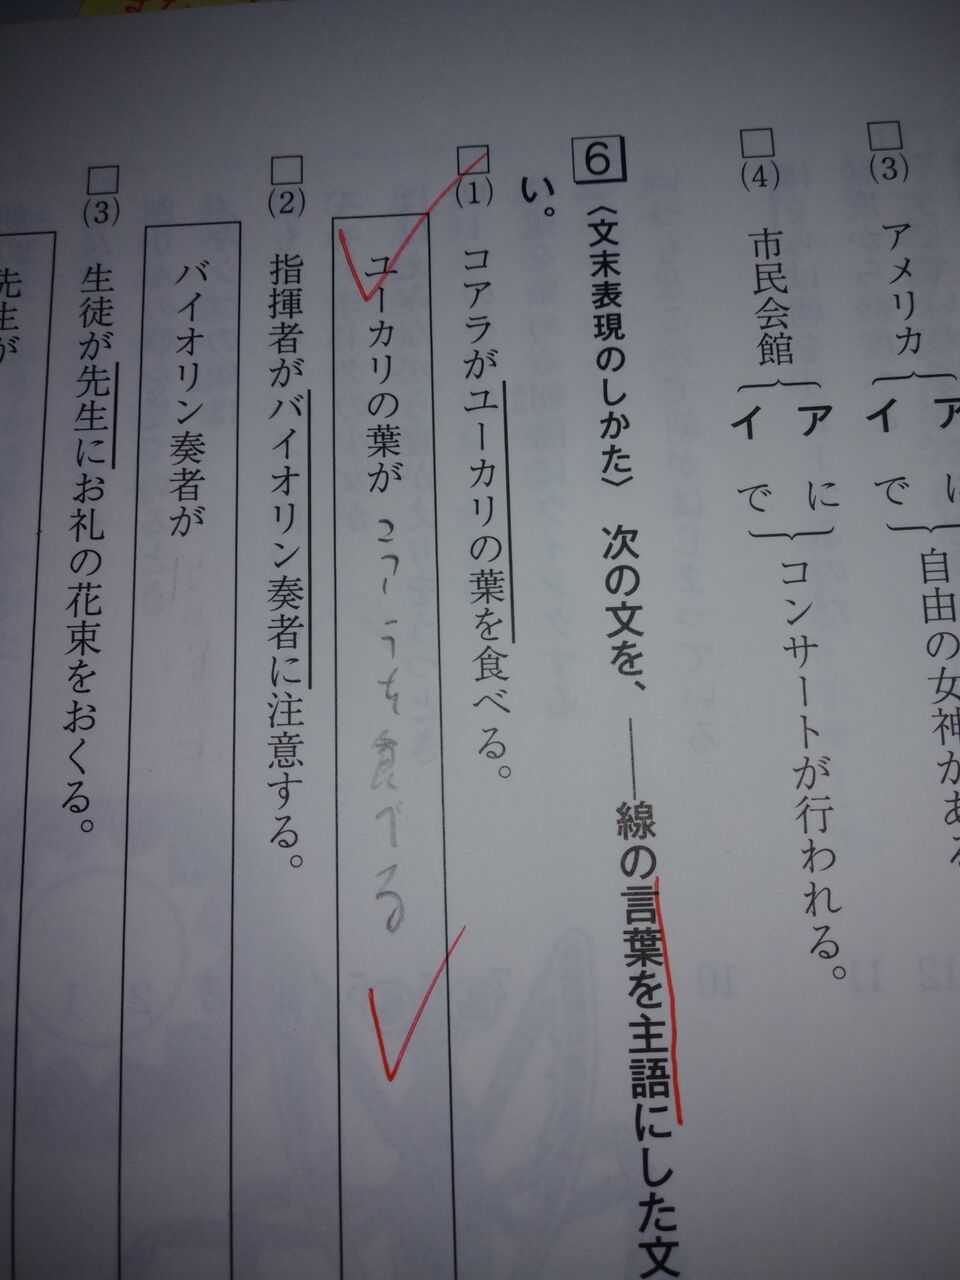 (3) アメリカ
ア に
イ で
自由の女神がある
(4) 市民会館
ア に
イ で
コンサートが行われる。
6 〈文末表現のしかた〉 次の文を、――線の言葉を主語にした文
い。
(1) コアラがユーカリの葉を食べる。
ユーカリの葉が
を食べる
(2) 指揮者がバイオリン奏者に注意する。
バイオリン奏者が
(3) 生徒が先生にお礼の花束をおくる。
先生が